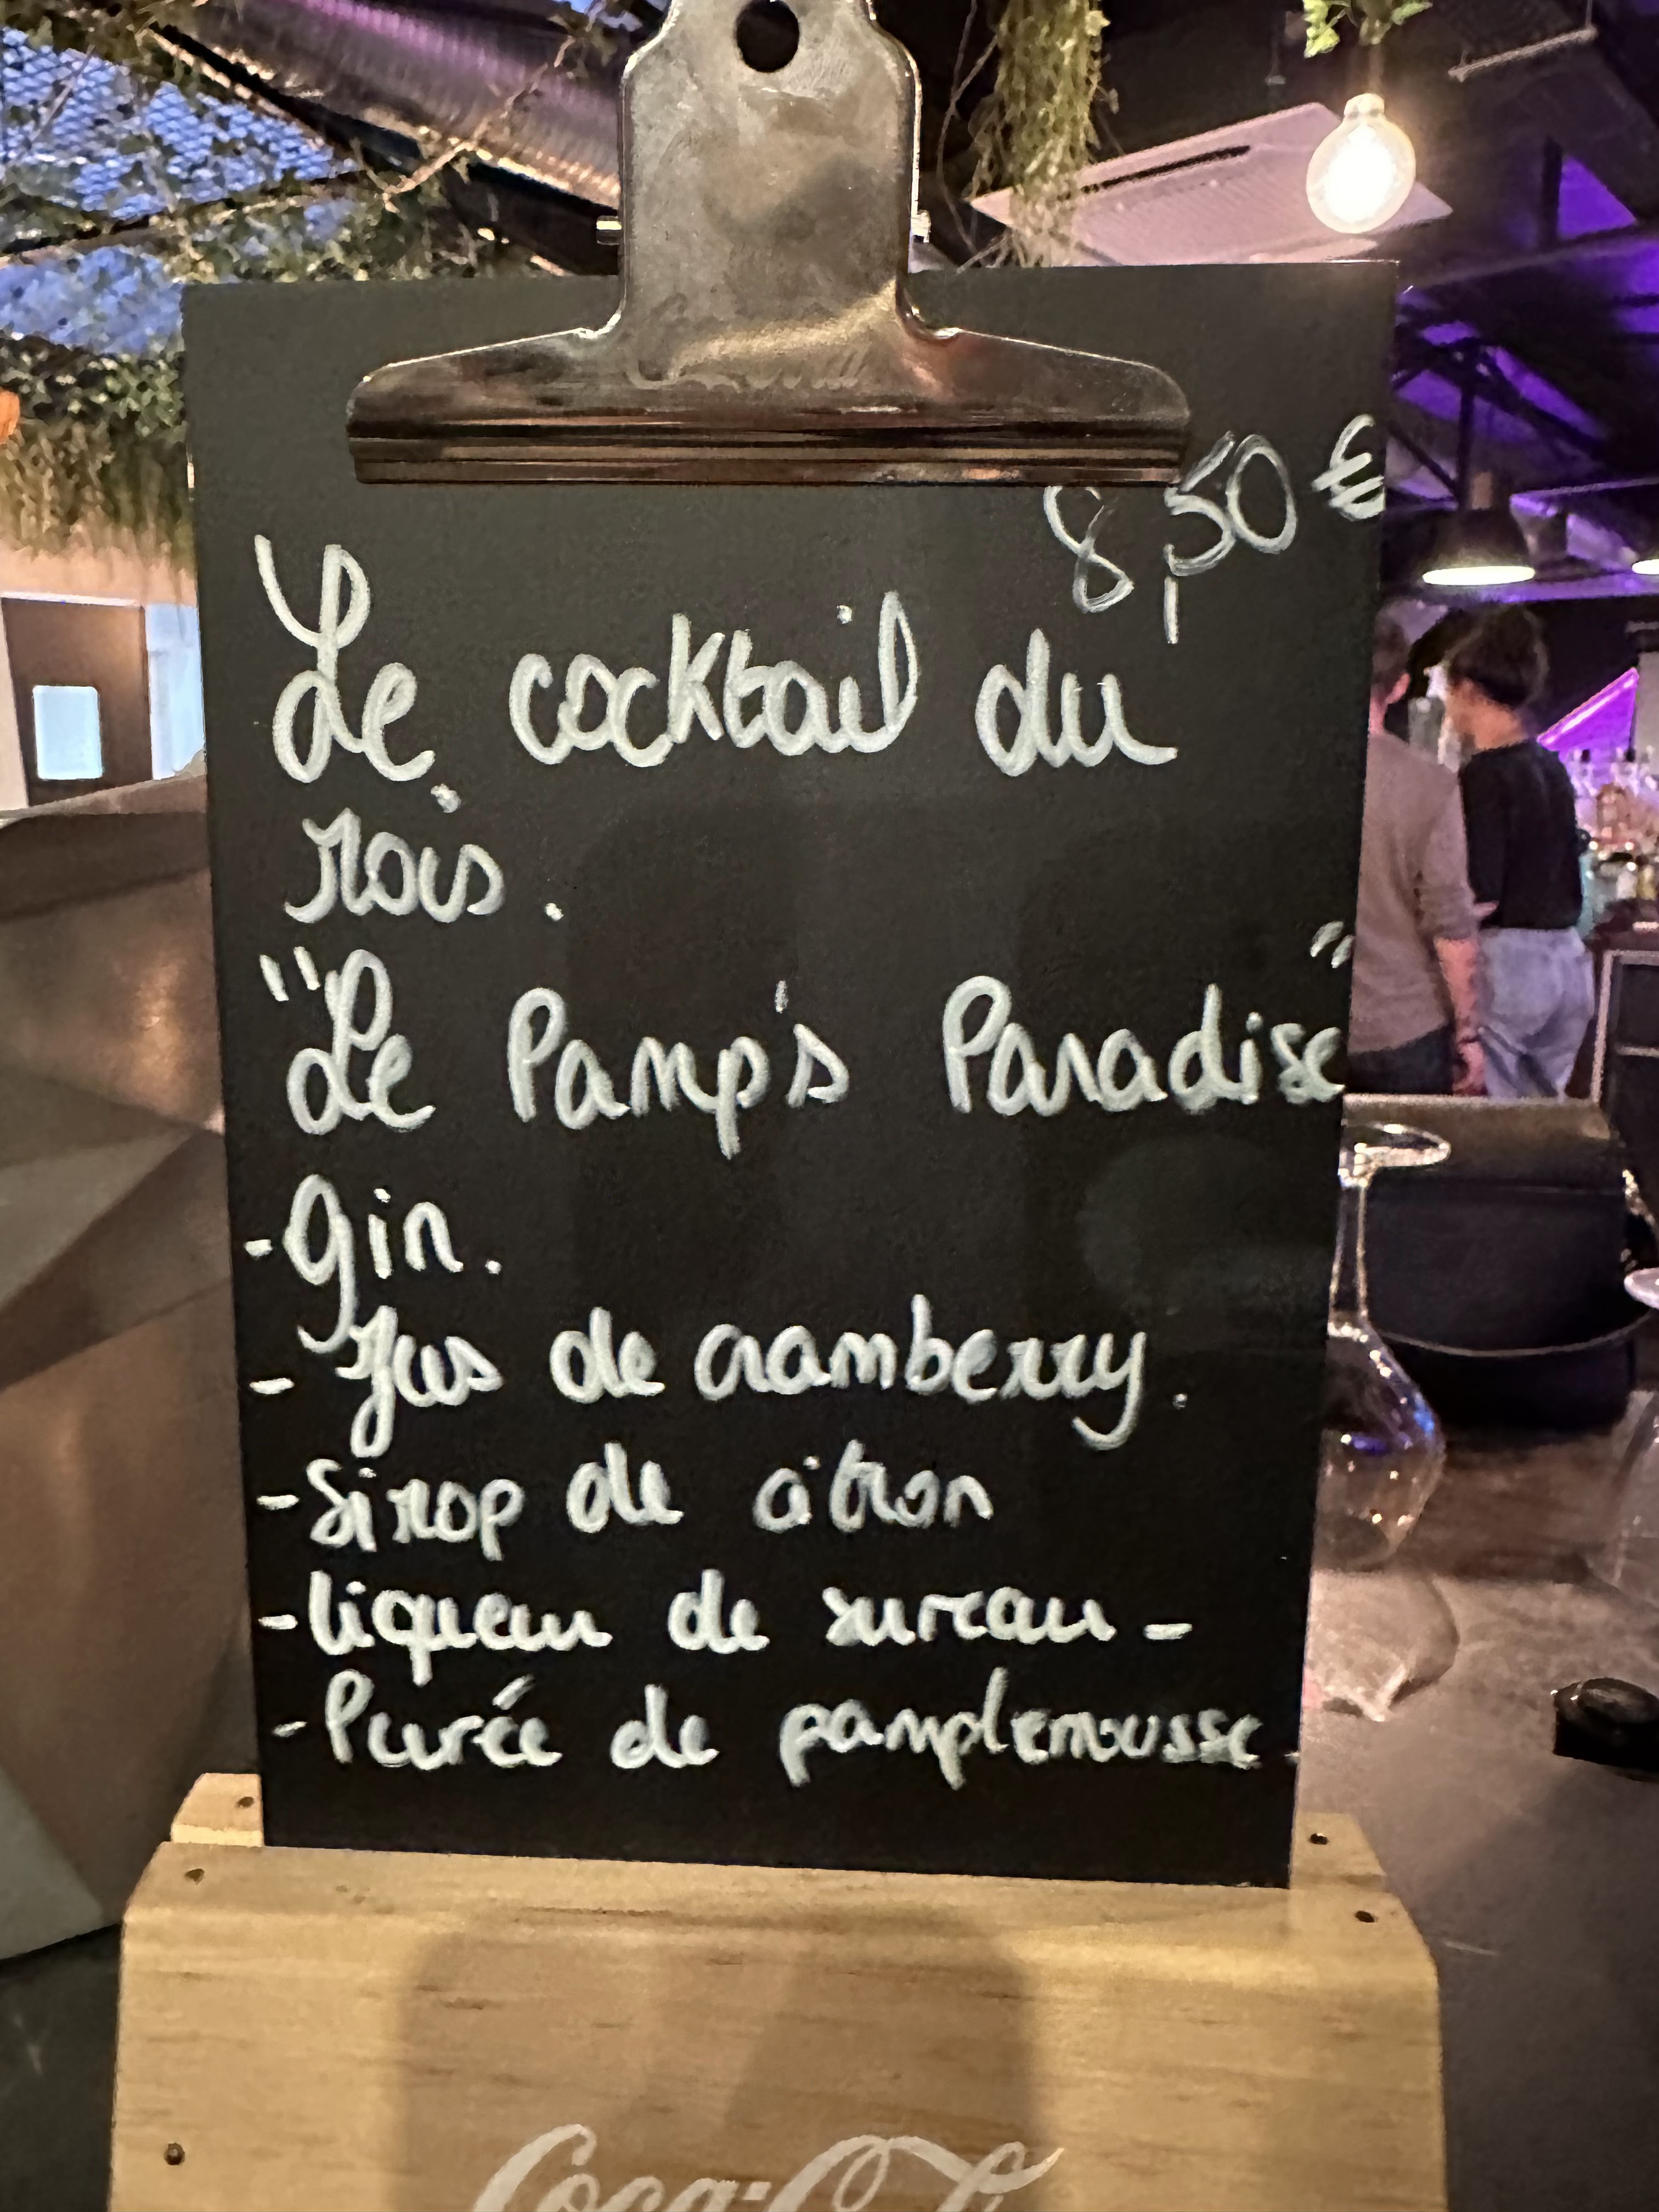 8,50 €
Le cocktail du
mois.
"Le Pamp's Paradise"
- Gin.
- Jus de cramberry.
- Sirop de citron
- liqueur de sureau -
- Purée de pamplemousse
Coca-Co